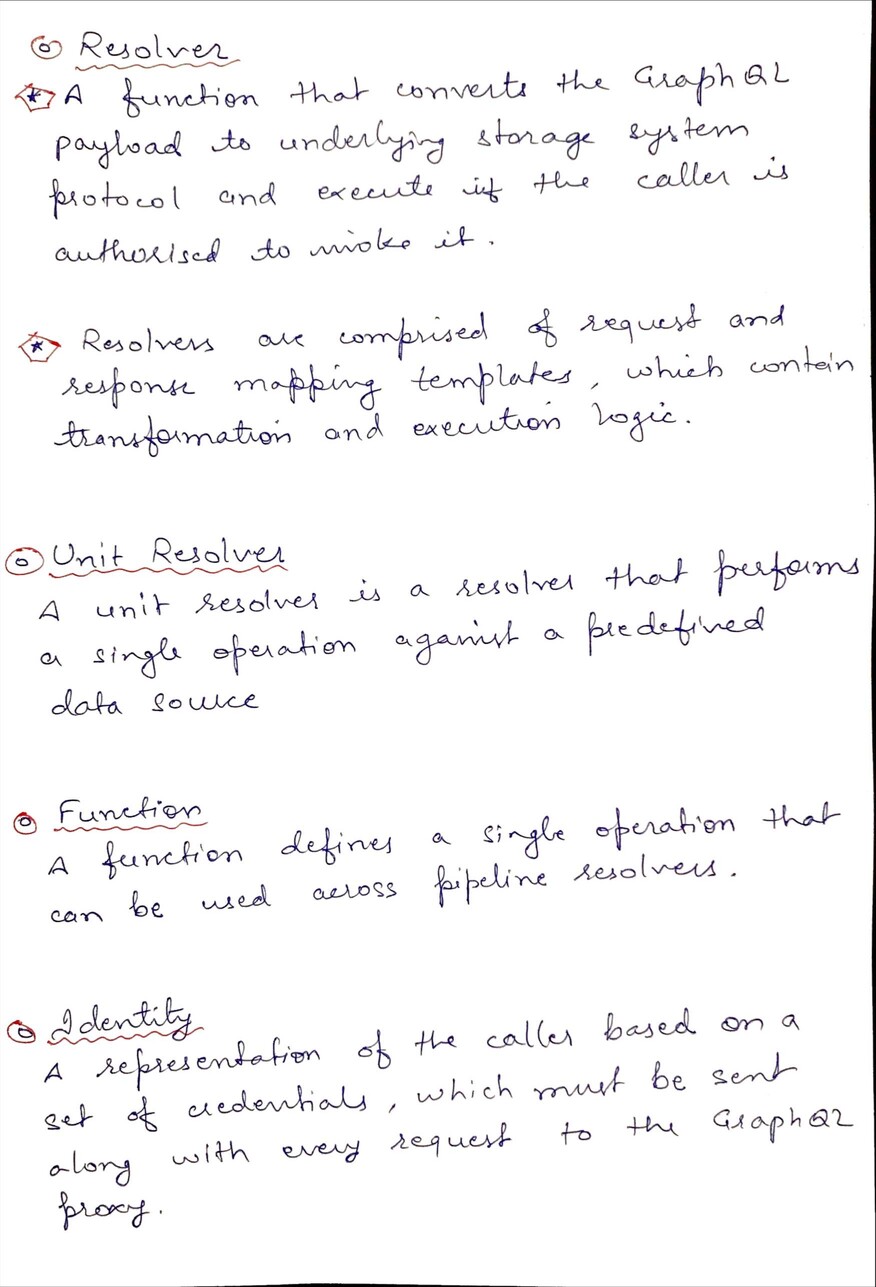 Resolver
A function that converts the GraphQL
payload to underlying storage system
protocol and execute if the caller is
authorised to invoke it.
Resolvers are comprised of request and
response mapping templates, which contein
transformation and execution logic.
Unit Resolver
A unit resolver is a resolver that performs
a single operation against a predefined
data source
Function
A function defines a single operation that
can be used across pipeline resolvers.
Identity
A representation of the caller based on a
set of credentials, which must be sent
along with every request to the GraphQL
proxy.